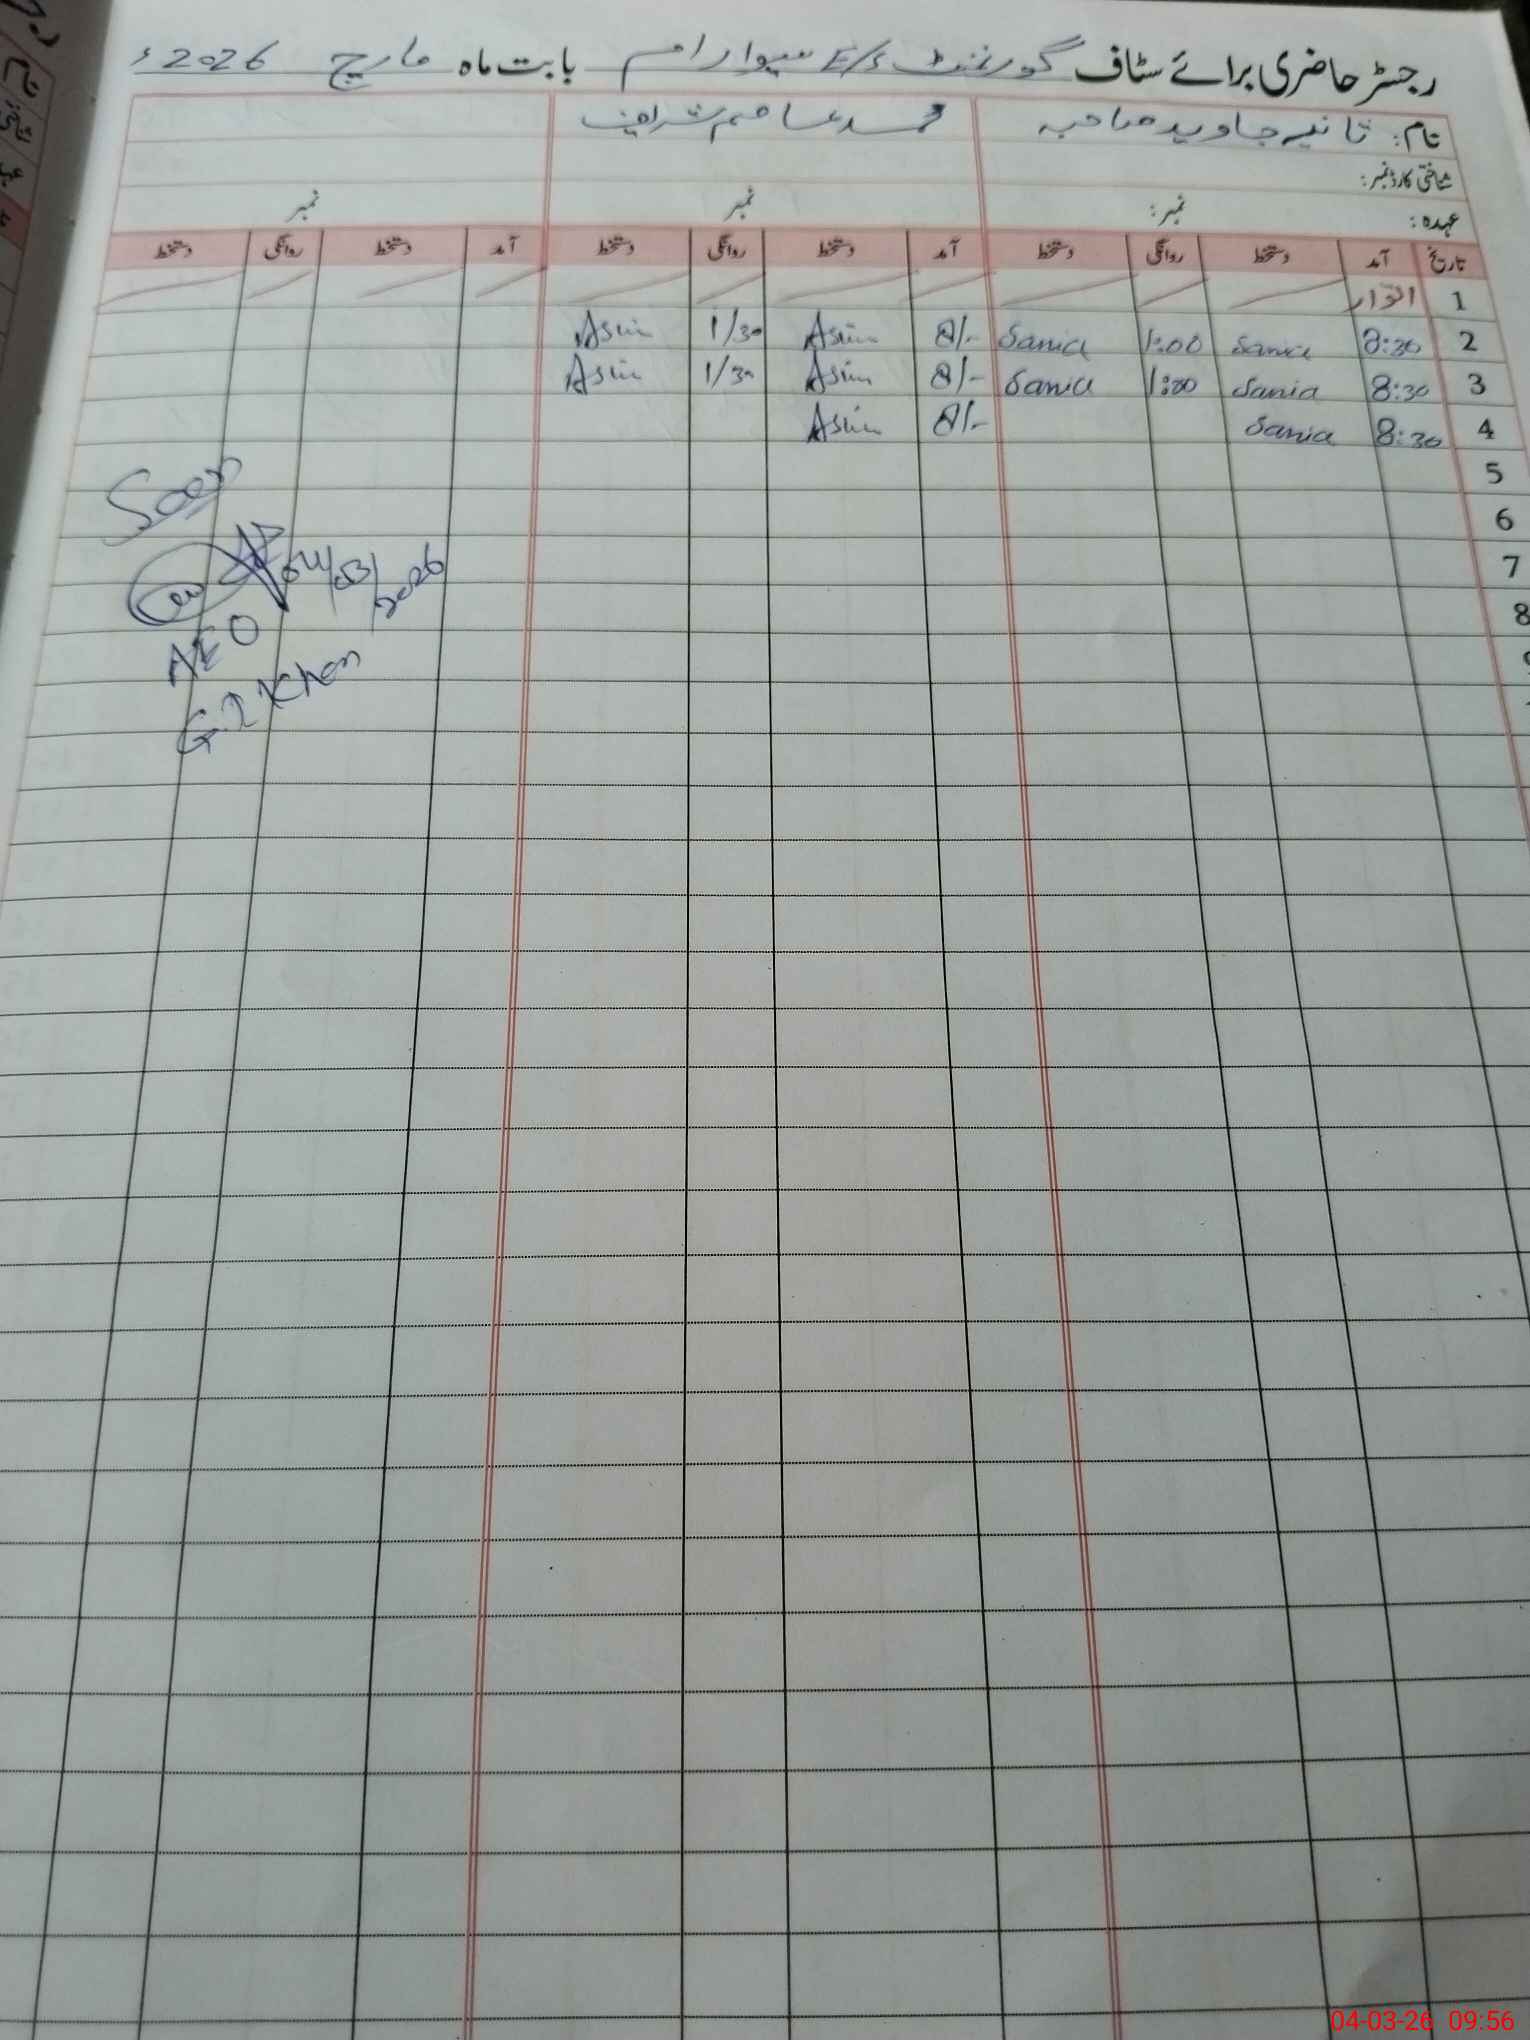 رجسٹر حاضری برائے سٹاف گورنمنٹ E/s سیوا رام بابت ماہ مارچ 2026ء
نام: ثانیہ جاوید صاحبہ محمد عاصم شریف
شناختی کارڈ نمبر:
عہدہ: نمبر: نمبر نمبر
تاریخ آمد دستخط روانگی دستخط آمد دستخط روانگی دستخط آمد دستخط روانگی دستخط
1 اتوار
2 8:30 Sania 1:00 Sania 8/- Asim 1/30 Asim
3 8:30 Sania 1:00 Sania 8/- Asim 1/30 Asim
4 8:30 Sania 8/- Asim
5
6
7
8
Seen
04/03/2026
AEO
G.I Khan
04-03-26 09:56